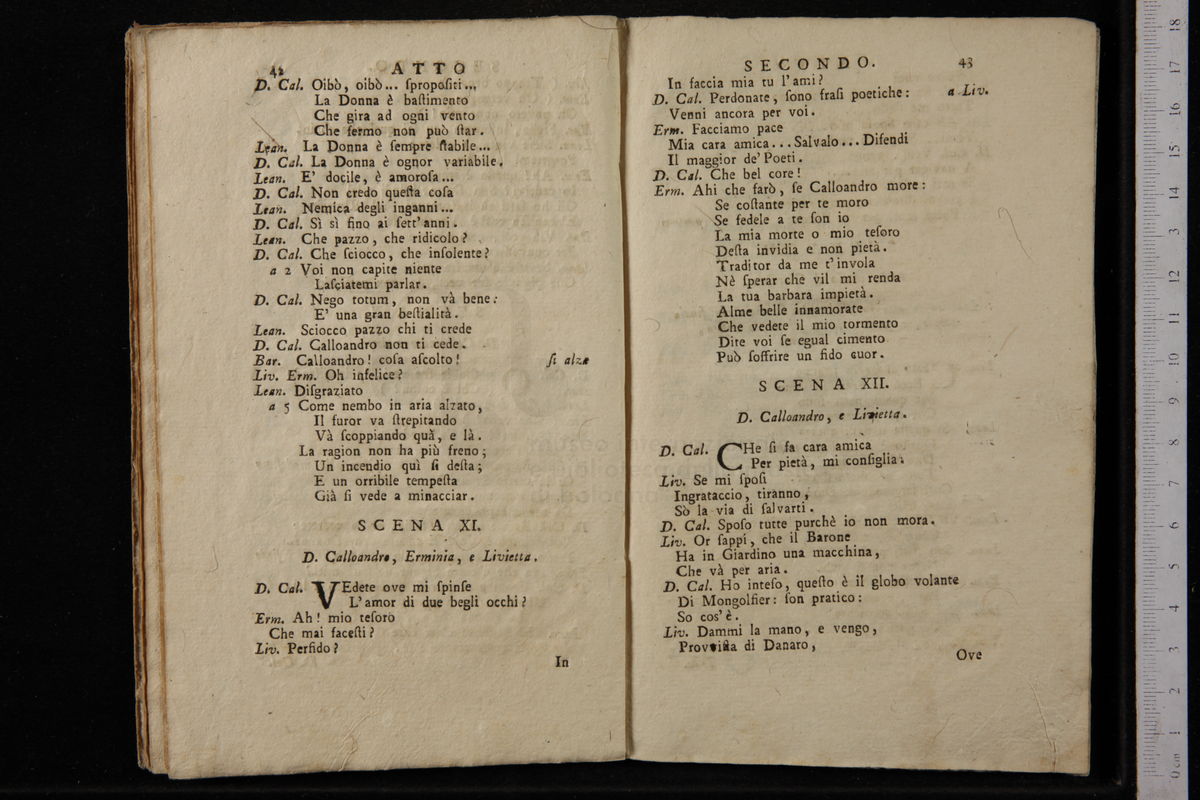 42 ATTO
D. Cal. Oibò, oibò... ſpropoſiti...
La Donna è baſtimento
Che gira ad ogni vento
Che fermo non può ſtar.
Lean. La Donna è ſempre ſtabile...
D. Cal. La Donna è ognor variabile.
Lean. E' docile, è amoroſa...
D. Cal. Non credo queſta coſa
Lean. Nemica degli inganni...
D. Cal. Sì sì fino ai ſett'anni.
Lean. Che pazzo, che ridicolo?
D. Cal. Che ſciocco, che inſolente?
a 2 Voi non capite niente
Laſciatemi parlar.
D. Cal. Nego totum, non và bene:
E' una gran beſtialità.
Lean. Sciocco pazzo chi ti crede
D. Cal. Calloandro non ti cede.
Bar. Calloandro! coſa aſcolto! ſi alza
Liv. Erm. Oh infelice?
Lean. Diſgraziato
a 5 Come nembo in aria alzato,
Il furor va ſtrepitando
Và ſcoppiando quà, e là.
La ragion non ha più freno;
Un incendio quì ſi deſta;
E un orribile tempeſta
Già ſi vede a minacciar.
SCENA XI.
D. Calloandro, Erminia, e Livietta.
D. Cal. VEdete ove mi ſpinſe
L'amor di due begli occhi?
Erm. Ah! mio teſoro
Che mai faceſti?
Liv. Perfido?
In
SECONDO. 43
In faccia mia tu l'ami?
D. Cal. Perdonate, ſono fraſi poetiche: a Liv.
Venni ancora per voi.
Erm. Facciamo pace
Mia cara amica... Salvalo... Difendi
Il maggior de' Poeti.
D. Cal. Che bel core!
Erm. Ahi che farò, ſe Calloandro more:
Se coſtante per te moro
Se fedele a te ſon io
La mia morte o mio teſoro
Deſta invidia e non pietà.
Traditor da me t'invola
Nè ſperar che vil mi renda
La tua barbara impietà.
Alme belle innamorate
Che vedete il mio tormento
Dite voi ſe egual cimento
Può ſoffrire un fido cuor.
SCENA XII.
D. Calloandro, e Livietta.
D. Cal. CHe ſi fa cara amica
Per pietà, mi conſiglia.
Liv. Se mi ſpoſi
Ingrataccio, tiranno,
Sò la via di ſalvarti.
D. Cal. Spoſo tutte purchè io non mora.
Liv. Or ſappi, che il Barone
Ha in Giardino una macchina,
Che và per aria.
D. Cal. Ho inteſo, queſto è il globo volante
Di Mongolfier: ſon pratico:
So cos'è.
Liv. Dammi la mano, e vengo,
Provviſta di Danaro,
Ove